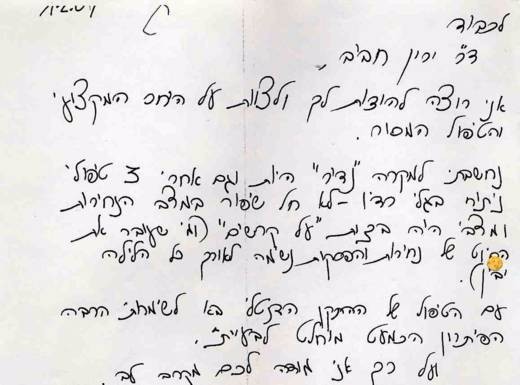 11.2.04
לכבוד
ד"ר ירין חביב,
אני רוצה להודות לך ולצוות על היחס המקצועי
והטיפול המסור.
נחשבתי למקרה "נדיר" היות וגם אחרי 3 טיפולי
ניתוח בגלי רדיו - לא חל שיפור במצב הנחירות
ומצבי היה בצות "על קרשים" (ומי שעובר את
של נחירות והפסקות נשימה לאורך כל הלילה
יבין).
עם הטיפול של ההתקן הדנטלי בא לשמחתי הרבה
הפיתרון הכמעט מוחלט לבעייתי.
ועל כך אני מודה לכם מקרב לב.